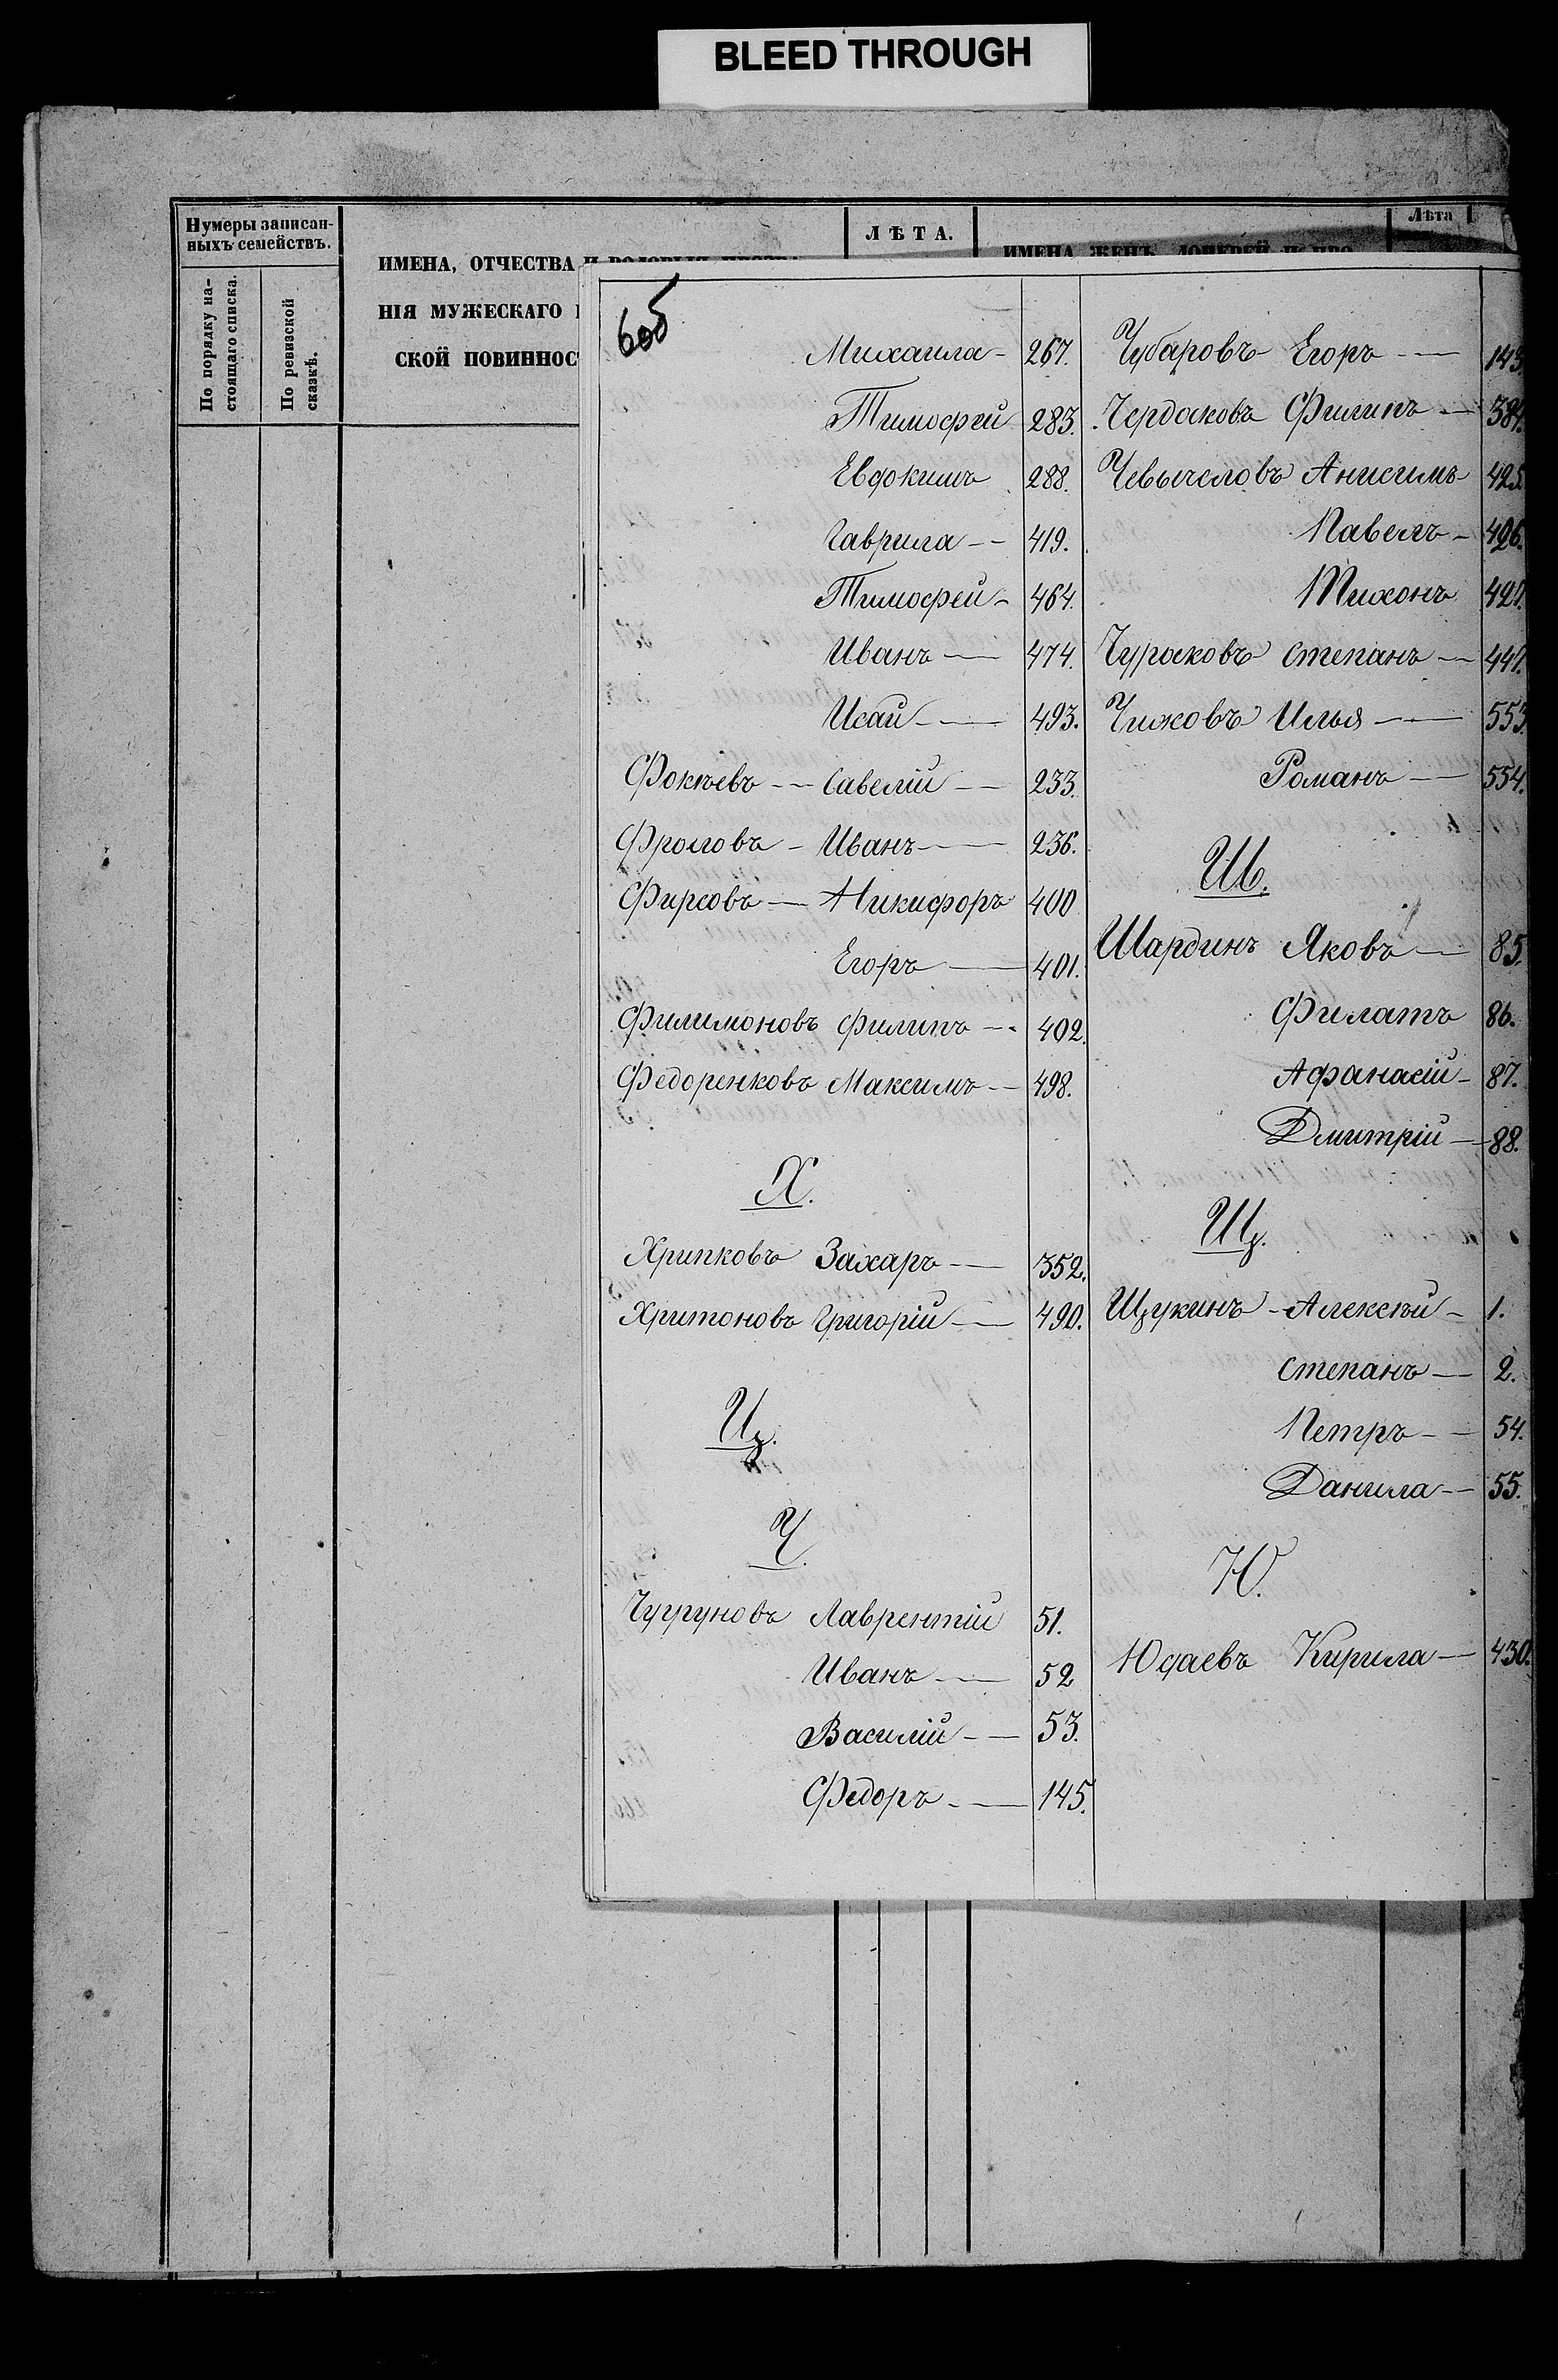 BLEED THROUGH
Нумеры записан-
ныхъ семействъ.
По порядку на-
стоящаго списка.
По ревизской
сказкѣ.
ИМЕНА, ОТЧЕСТВА И
НІЯ МУЖЕСКАГО
СКОЙ ПОВИННОС
ЛѢТА.
ИМЕНА ЖЕНЪ, ДОЧЕРЕЙ
Лѣта
605
Михаила - 267.
Тимофей 283.
Евдокимъ 288.
Гаврила - - 419.
Тимофей - 464.
Иванъ — 474.
Исай — 493.
Фокѣевъ - - Савелій — 233.
Фроловъ - Иванъ — 236.
Фирсовъ — Никифоръ 400
Егоръ — 401.
Филимоновъ Филипъ - - 402.
Федоренковъ Максимъ - - 498.
Х.
Хрипковъ Захаръ — 352.
Хритоновъ Григорій — 490.
Ц.
Ч.
Чугруновъ Лаврентій 51.
Иванъ — 52
Василій - — 53.
Федоръ - — 145.
Чубаровъ Егоръ - — 143.
Чердаковъ Филипъ — 384.
Чевычеловъ Анисимъ 425.
Павелъ - 426.
Тихонъ 427.
Чураковъ Степанъ — 447.
Чижовъ Илья — 553.
Романъ — 554.
Ш.
Шардинъ Яковъ — 85.
Филатъ 86.
Афанасій - 87.
Дмитрій — 88.
Щ.
Щукинъ - Алексѣй - 1.
Степанъ — 2.
Петръ - - 54.
Данила - - 55.
Ю.
Юдаевъ Кирила — 430.